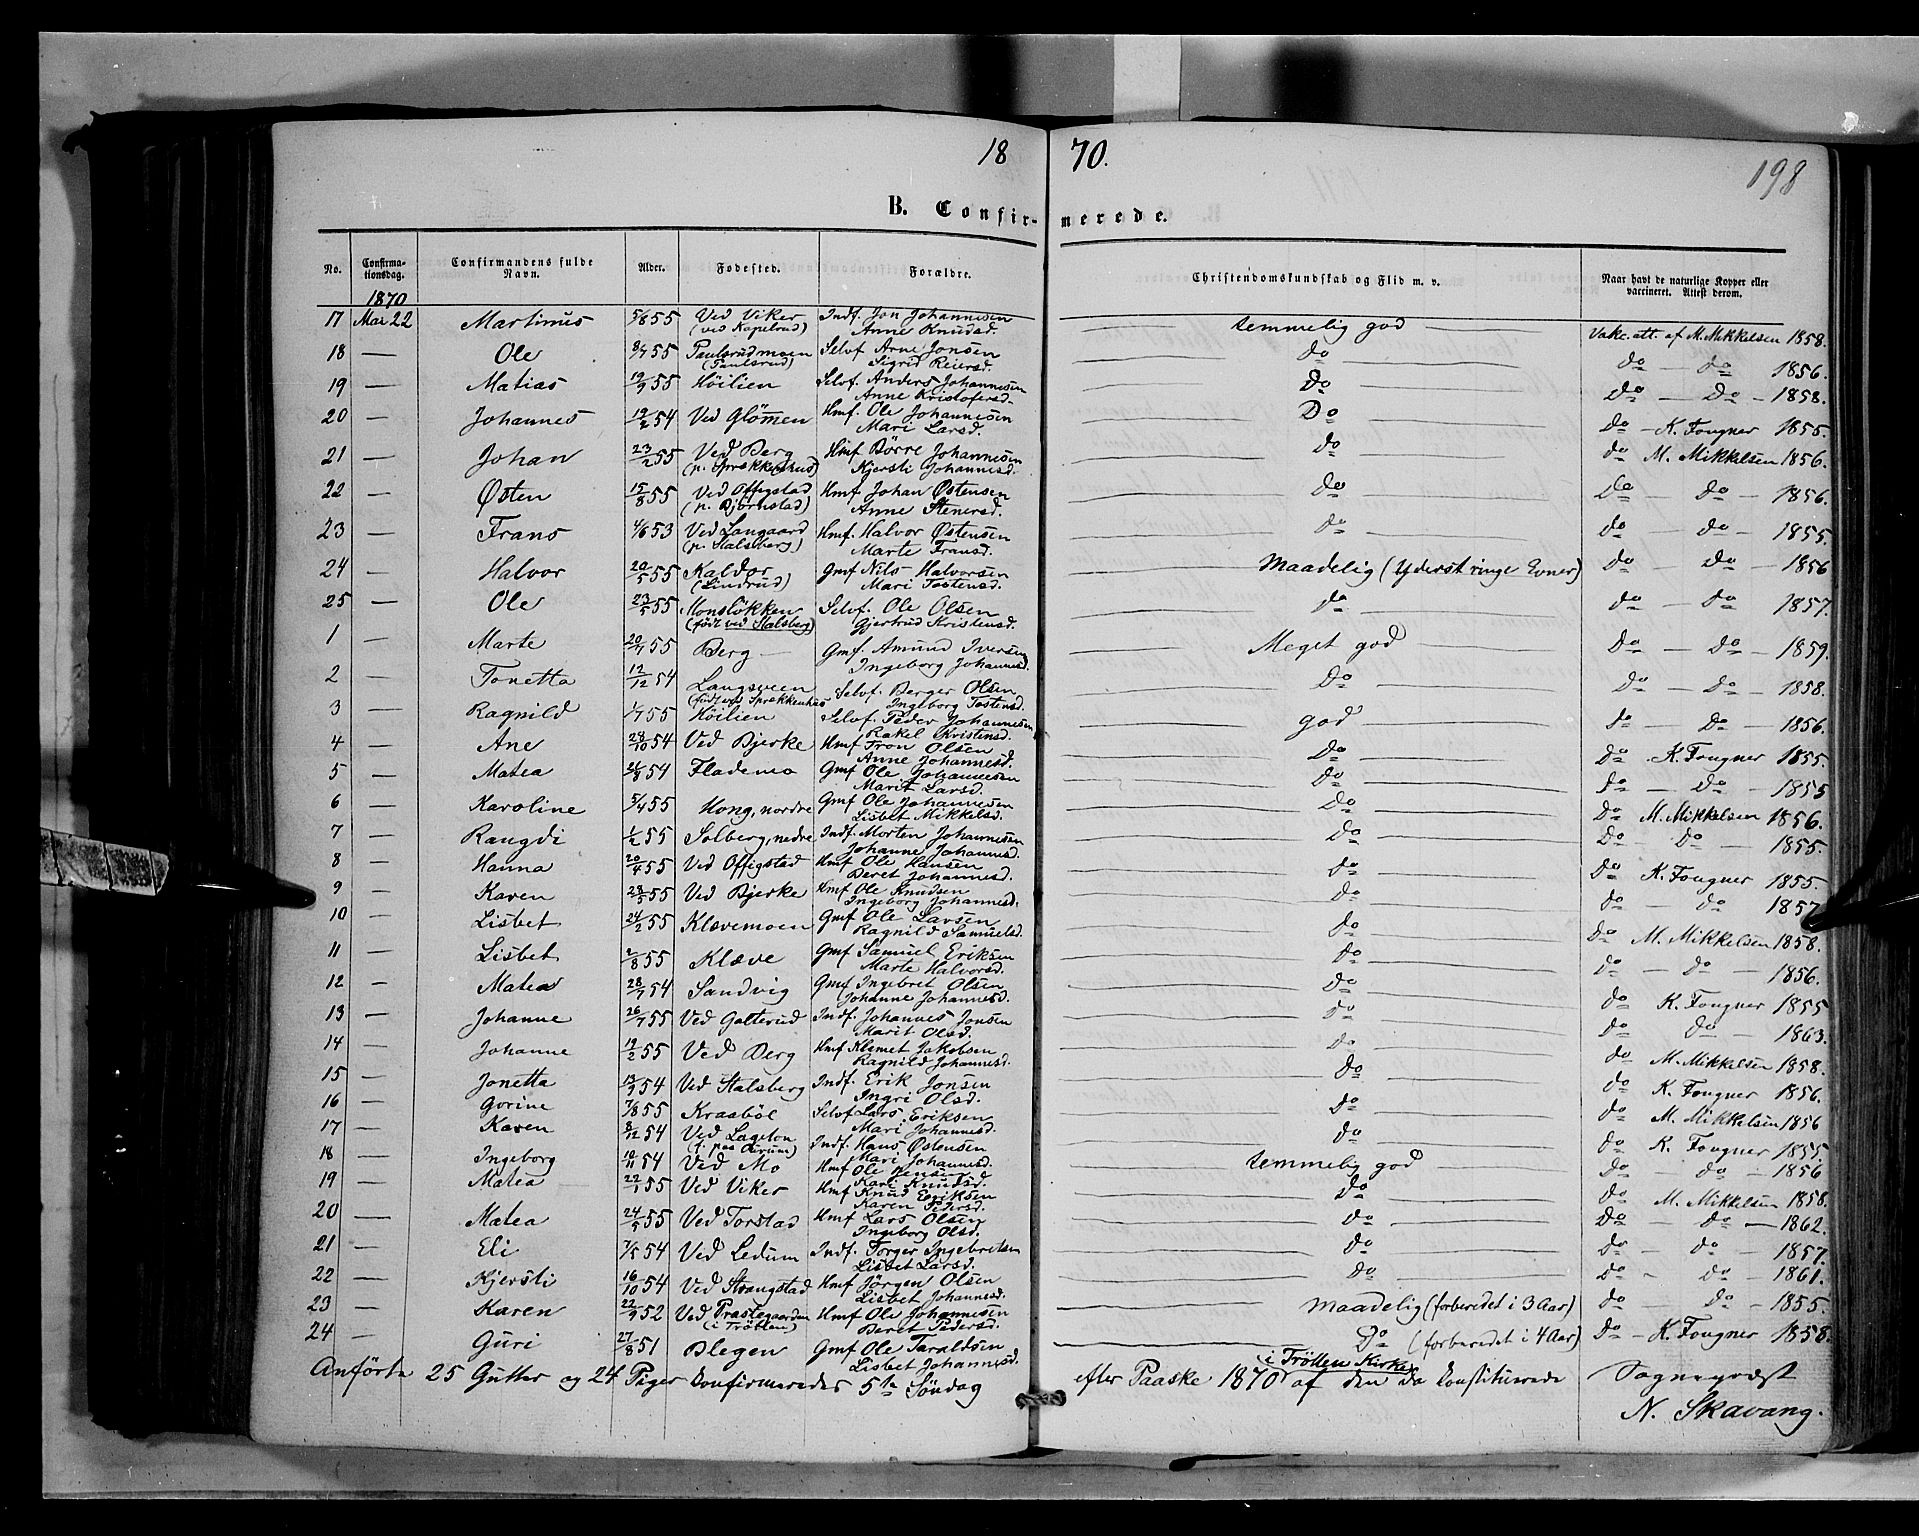 18 70.
198
B. Confir- merede.
No. Confirma- Confirmandens fulde Alder. Fødested. Forældre. Christendomskundskab og Flid m. v. Naar havt de naturlige Kopper eller
tionsdag. Navn. vaccineret. Attest derom.
1870
17 Mai 22 Martinus 5/8 55 Ved Viker Indf. Jon Johannesen temmelig god Vakc. att. af M. Mikkelsen 1858.
(ved Kapelrud) Anne Knudsd.
18 — Ole 8/7 55 Paulsrudmoen Selvf Arne Jonsen do do — do 1856.
(Paulsrud) Sigrid Reiersd.
19 — Matias 19/9 55 Höilien Selvf. Anders Johannesen Do Do — Do — 1858.
Anne Kristofersd.
20 — Johannes 19/2 54 Ved Glömmen Hmf. Ole Johannesen Do do — K. Fougner 1855.
Mari Larsd.
21 — Johan 23/2 55 Ved Berg Hmf Börre Johannesen do do M. Mikkelsen 1856.
Kjersti Johannesd.
22 — Østen 15/8 55 Ved Offigstad Hmf Johan Østensen do do do — 1856.
(p. Bjørnstad) Anne Stenersd.
23 — Frans 4/6 53 Ved Langaard Hmf. Halvor Østensen do do — do — 1855.
(p. Stalsberg) Marte Fransd.
24 — Halvor 20/5 55 Kaldor Gmf Nils Halvorsen Maadelig (yderst ringe Evner) do do — 1856
(Lindrud) Mari Tostensd.
25 — Ole 23/5 55 Monslökken Selvf. Ole Olsen do do — do 1857.
(födt ved Stalsberg) Gjertrud Kristensd.
1 — Marte 20/7 55 Berg — Gmf. Amund Iversen Meget god do — do — 1859.
Ingeborg Johannesd.
2 — Tonetta 12/12 54 Langsveen Selvf. Berger Olsen Do do — do — 1858.
(födt ved Sprekkenhus) Ingeborg Tostensd.
3 — Ragnild 1/7 55 Höilien Selvf. Peder Johannesen god do — do — 1856.
Rakel Kristensd.
4 — Ane 28/10 54 Ved Bjerke Hmf Tron Olsen Do do K. Fougner 1855.
Anne Johannesd.
5 — Matea 54 Flademo Gmf Ole Johannesen Do do — do — 1855
Marit Larsd.
6 — Karoline 5/4 55 Hong, nordre Gmf Ole Johannesen Do Do M. Mikkelsen 1856.
Lisbet Mikkelsd.
7 — Rangdi 1/2 55 Solberg, nedre Indf. Morten Johannesen do do — do — 1855.
Johanne Johannesd.
8 — Hanna 20/4 55 Ved Offigstad Hmf Ole Hansen do Do K. Fougner 1855.
Beret Johannesd.
9 — Karen 28/5 55 Ved Bjerke Hmf Ole Knudsen do do — do 1857
Ingeborg Johannesd.
10 — Lisbet 24/2 55 Klævemoen Gmf Ole Larsen do Do M. Mikkelsen 1858.
Ragnild Samuelsd.
11 — Lisbet 2/8 55 Klæve Gmf Samuel Eriksen do do — do — 1856.
Marte Halvorsd.
12 — Matea 28/7 54 Sandvig Gmf Ingebret Olsen do do K. Fougner 1855
Johanne Johannesd.
13 — Johanne 26/7 55 Ved Golterud Indf. Johannes Jonsen do do do — 1863.
Marit Olsd.
14 — Johanne 19/2 55 Ved Berg Hmf Klemet Jakobsen do do M. Mikkelsen 1858.
Ragnild Johannesd.
15 — Jonetta 13/9 54 Ved Stalsberg Indf. Erik Jonsen Do do K. Fougner 1856.
Ingri Olsd.
16 — Gorine 7/8 55 Kraaböl Selvf Lars Eriksen do do M. Mikkelsen 1856
Mari Johannesd.
17 — Karen 8/12 54 Ved Lageton Indf. Hans Østensen do do K. Fougner 1855.
Mari Johannesd.
18 — Ingeborg 10/11 54 Ved Mo Hmf Ole temmelig god do do — 1856
Kari Knudsd.
19 — Matea 22/1 55 Ved Viker Hmf Knud Eriksen do do M. Mikkelsen 1858.
Karen Pedersd.
20 — Matea 24/5 55 Ved Torstad Hmf Lars Olsen do Do do — 1862.
Ingeborg Olsd.
21 — Eli 7/5 54 Ved Ledum Indf. Torger Ingebretsen do do — do — 1857.
Lisbet Larsd.
22 — Kjersti 16/10 54 Ved Strangstad Hmf Jörgen Olsen do do - do — 1861.
Lisbet Johannesd.
23 — Karen 22/9 52 Ved Præstegaarden Hmf Ole Johannesen Maadelig (forberedet i 3 Aar) do do — 1855.
(i Trötten) Beret Pedersd.
24 — Guri 27/8 51 Blegen Gmf Ole Taraldsen Do (forberedet i 4 Aar) Do — K. Fougner 1858.
Lisbet Johannesd.
Anförte 25 Gutter og 24 Piger konfirmeredes 5te Söndag efter Paaske 1870 i Trötten Kirke af den da konstituerede Sognepræst
N. Skavang.